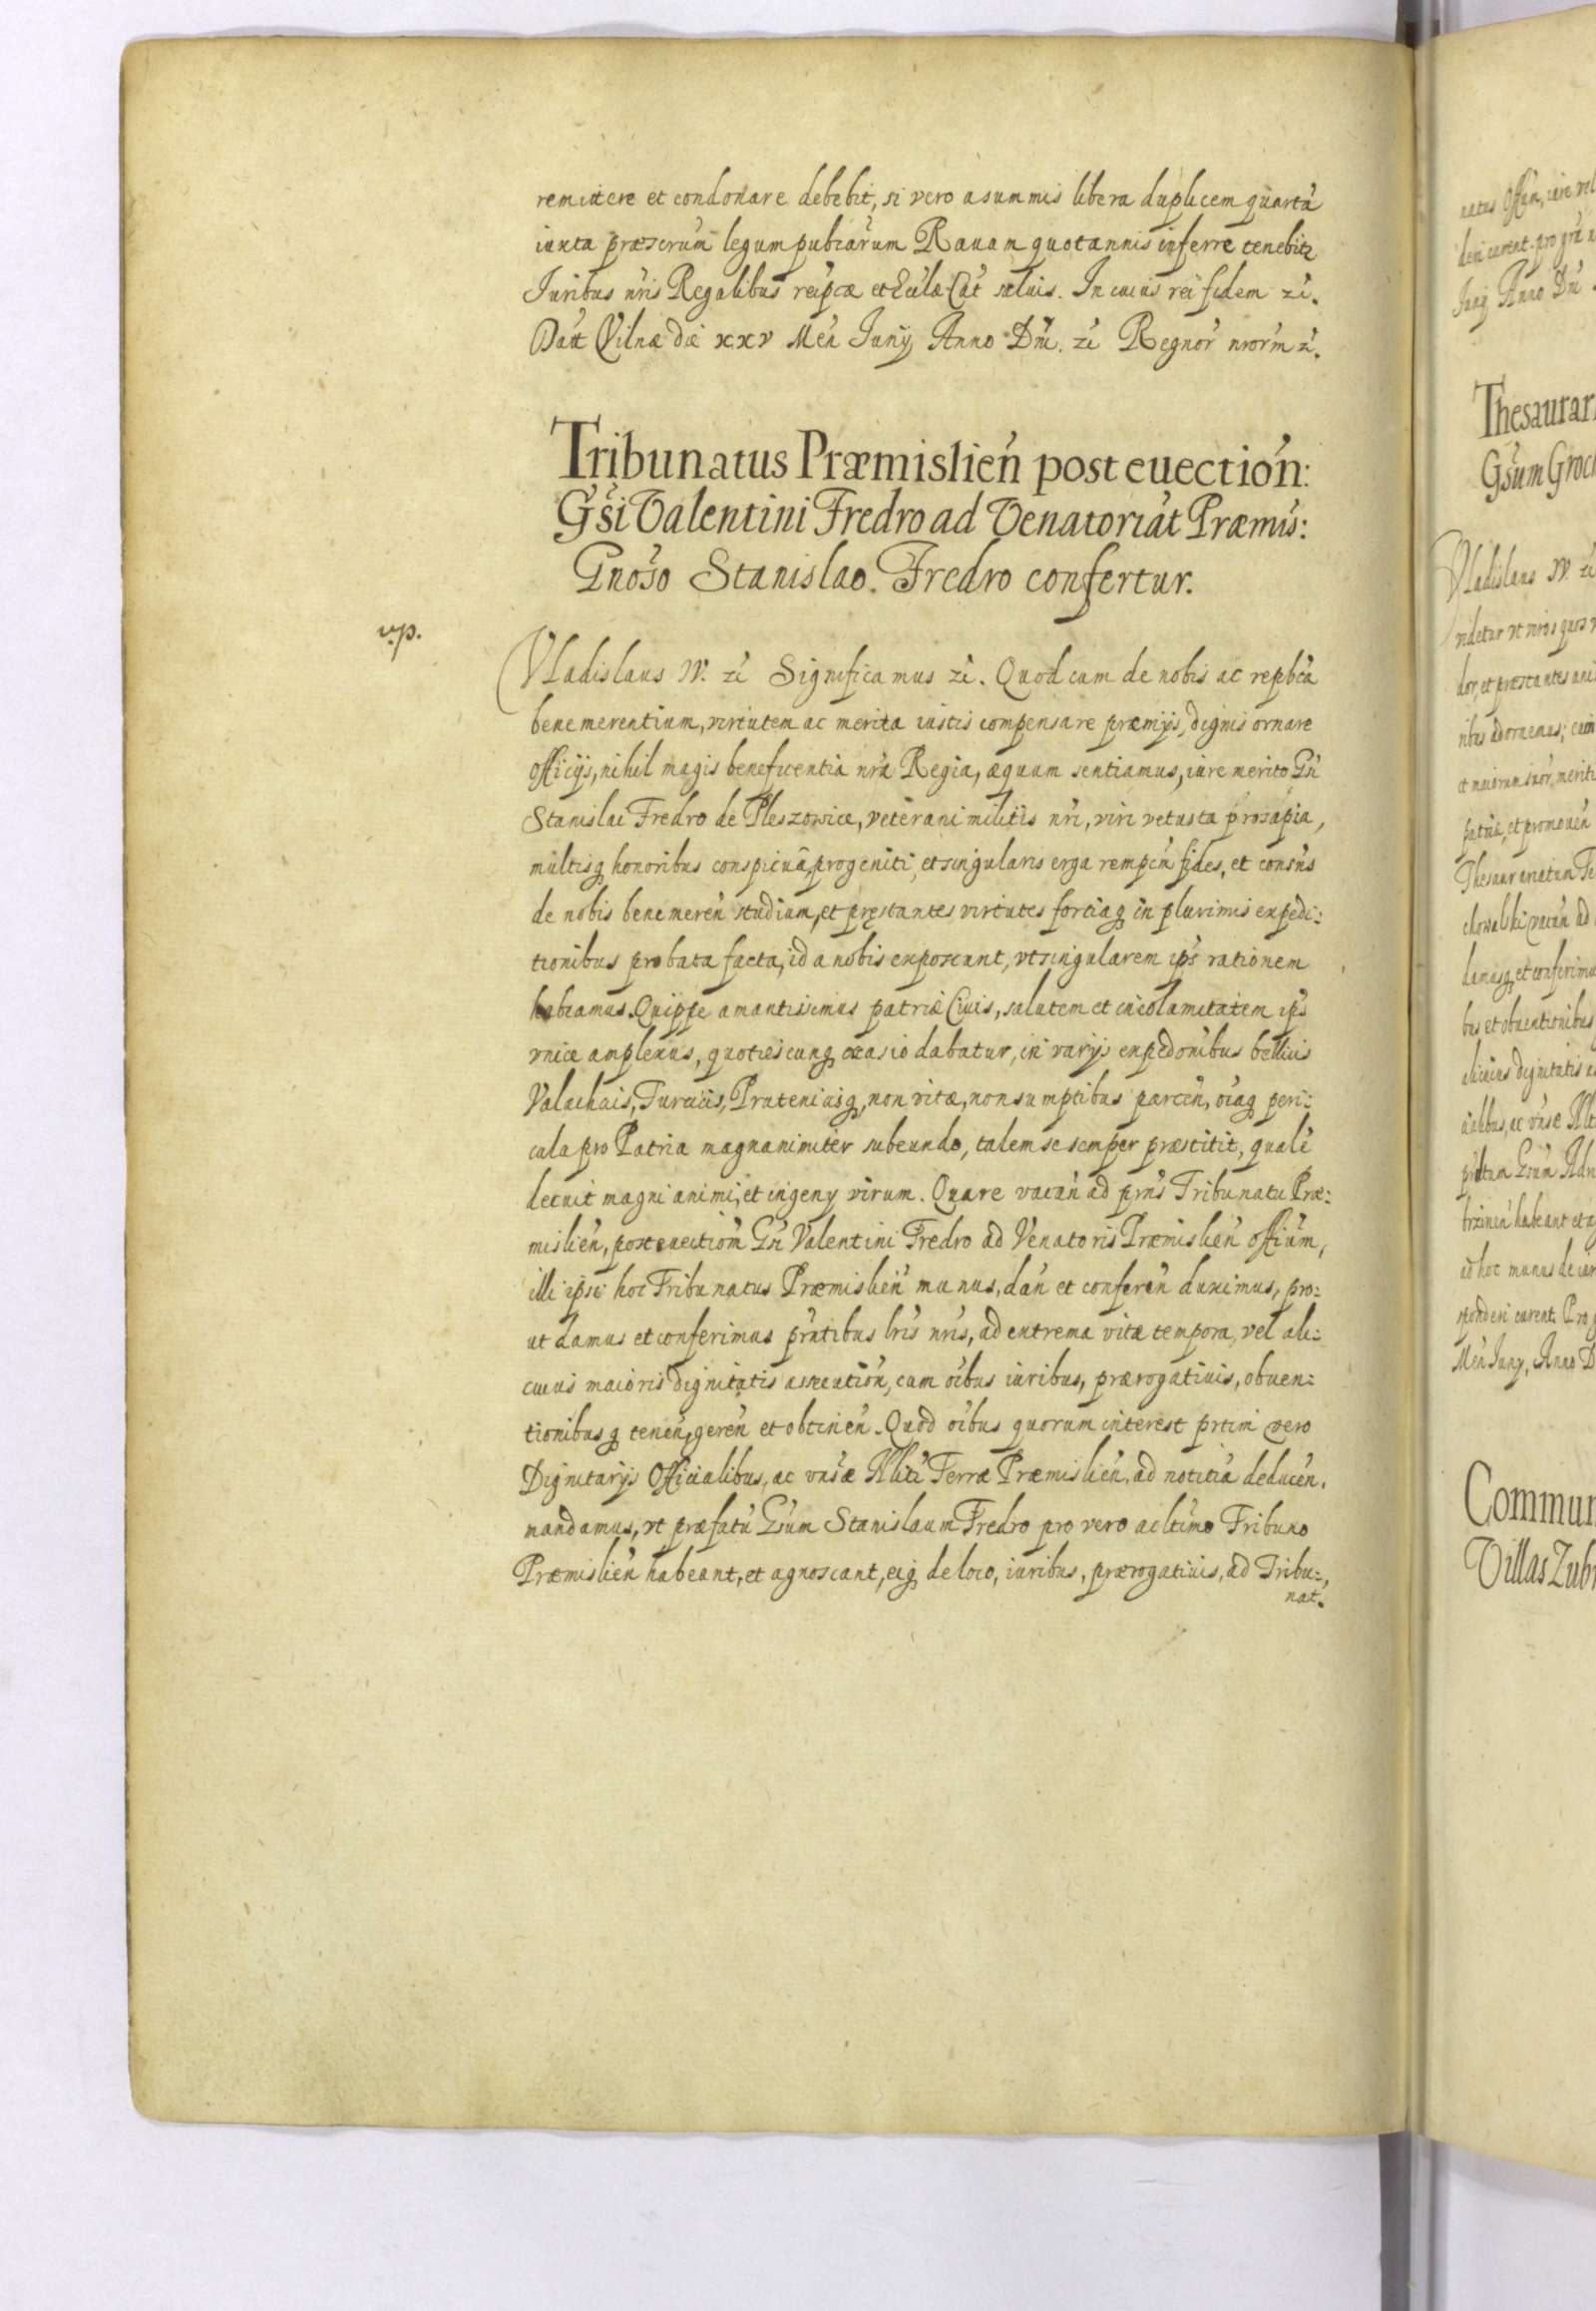 remittere et condonare debebit, si vero a summis libera duplicem quartã
iuxta præscrum̃ legum pubcarum Rauam quotannis inferre tenebitr
Iuribus nr̃is Regalibus reipcæ et Eccłæ Cat̃ saluis. In cuius rei fidem zc̃.
Datt Vilnæ die xxv Men̄ Iunij Anno Dn̄i. zc̃ Regnor̃ nrorm̃ zc̃.
Tribunatus Præmislien̄ post euection̄:
Gs̃i Valentini Fredro ad Venatoriat̃ Præmis̃:
Gnoso Stanislao. Fredro confertur.
Vladislaus IV. zc̃ Significamus zc̃. Quod cum de nobis ac repbca
bene merentium, virtutem ac merita iustis compensare præmijs, dignis ornare
officijs, nihil magis beneficentia nr̃a Regia, æquum sentiamus, iure merito Gs̃i
Stanislai Fredro de Pleszowice, veterani militis nr̃i, viri vetusta prosapia,
multisq honoribus conspicuã, progeniti, et singularis erga rempcm̃ fides, et consñs
de nobis bene meren̄ studium, et pręstantes virtutes fortiaq in plurimis expedi:
tionibus probata facta, id a nobis exposcunt, vt singularem ips̃ rationem
habeamus. Quippe amantissimus patriæ Ciuis, salutem et incolumitatem ips̃
vnice amplexus, quotiescunq occasio dabatur, in varijs expedõnibus bellicis
Valachicis, Turcicis, Prutenicisq, non vitæ, non sumptibus parcen̄, oĩaq peri:
cula pro Patria magnanimiter subeundo, talem se semper præstitit, qualẽ
decuit magni animi, et ingenij virum. Quare vacan̄ ad prns̃ Tribunatu Præ:
mislien̄, post euection̄ Gs̃i Valentini Fredro ad Venatoris Præmislien̄ offium̃,
illi ipsi hoc Tribunatus Præmislien̄ munus, dan̄ et conferen̄ duximus, pro:
ut damus et conferimus prñtibus lrĩs nrĩs, ad extrema vitæ tempora, vel ali:
cuius maioris dignitatis assecution̄, cum oĩbus iuribus, prærogatiuis, obuen:
tionibusq tenen̄, geren̄ et obtinen̄. Quod oĩbus quorum interest prtim̃ vero
Dignitarijs Officialibus, ac vnsæ Nllti Terræ Præmislien̄, ad notitiã deducen̄.
mandamus, vt præfatũ Gsũm Stanislaum Fredro pro vero ac ltimo Tribuno
Præmislien̄ habeant, et agnoscant, eiq de loco, iuribus, prærogatiuis, ad Tribu:
nat.